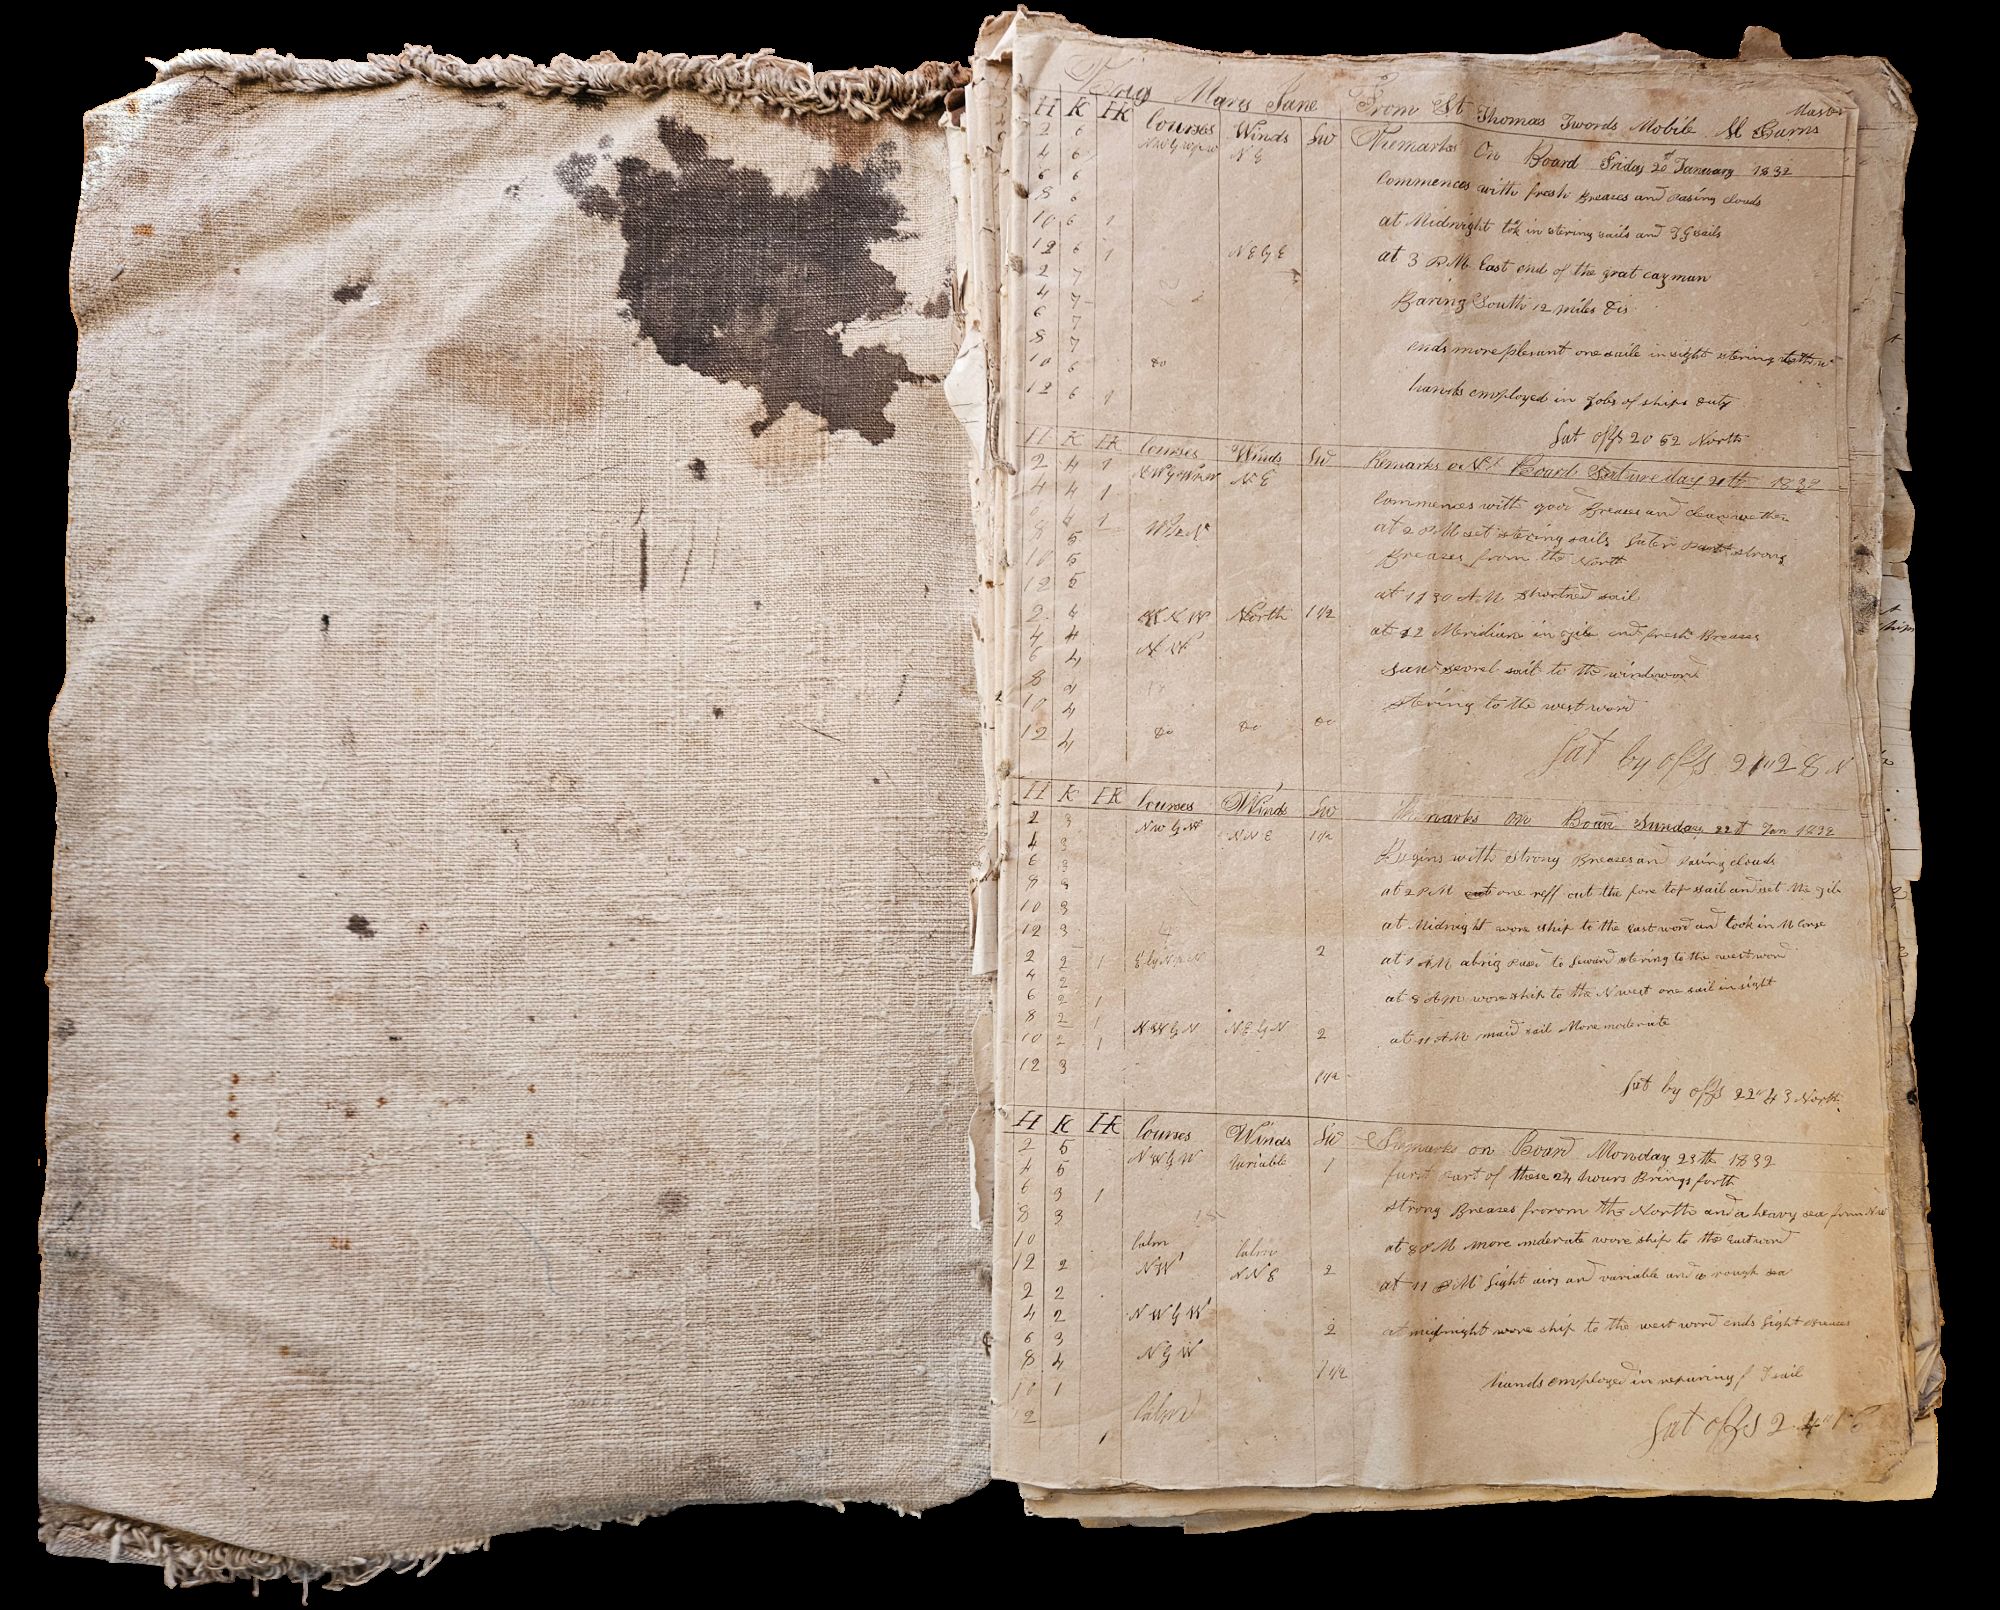 Brig Mary Jane From St Thomas Twords Mobile Burns Master
H K HK Courses Winds Lw Remarks On Board Friday 20th January 1832
2 6 N E
4 6
6 6 Commences with fresh Breazes and Pasing clouds
8 6
10 6 1 at Midnight tok in stering sails and T G sails
12 6 1 N E G E at 3 P M East end of the grat cayman
2 7
4 7 Baring South 12 miles dis
6 7
8 7 ends more plesant one saile in sight stering to the
10 6 do
12 6 1 hands employed in Jobs of ships duty
Lat obs 20 52 North
H K HK Courses Winds Lw Remarks on Board Satureday 21th 1832
2 4 1 N E
4 4 1 Commences with good Breazes and clear wether
6 4 1
8 5 at 2 P M set stering sails later part strong
10 5 Breazes from the North
12 5 at 11 30 A M shortned sail
2 4 W N W North 1 1/2
4 4 N W at 12 Meridian in gibe and fresh Breazes
6 4
8 4 saw sevrel sail to the windword
10 4 stering to the westword
12 4 do do do
Lat by obs 21" 28 N
H K HK Courses Winds Lw Remarks on Board Sunday 22d Jan 1832
2 3 N W G W N N E 1 1/2
4 3 Begins with strong Breazes and Pasing clouds
6 3
8 3 at 2 P M one reff out the fore top sail and set the gib
10 3
12 3 at Midnight wore ship to the Eastword and took in M
2 2 1 2 at 1 A M a brig Pased to leward stering to the westword
4 2
6 2 1 at 8 A M wore ship to the N west one sail in sight
8 2 1 N W G N N E G N 2
10 2 1 at 11 A M maid sail More moderate
12 3 1 1/2
Lat by obs 22" 43 North
H K HK Courses Winds Lw Remarks on Board Monday 23th 1832
2 5 N W G W Variable 1 furst Part of these 24 hours Brings forth
4 5
6 3 1 strong Breazes frorom the North and a heavy sea from N W
8 3
10 Calm Calm at 8 P M more mderate wore ship to the Eastword
12 2 N W N N E 2
2 2 at 11 P M Light airs and variable and a rough sea
4 2 N W G W 2
6 3 at midnight wore ship to the westword ends Light Breazes
8 4 N G W 1 1/2
10 1 hands employed in reparing f T sail
12 Calm
Lat obs 24"